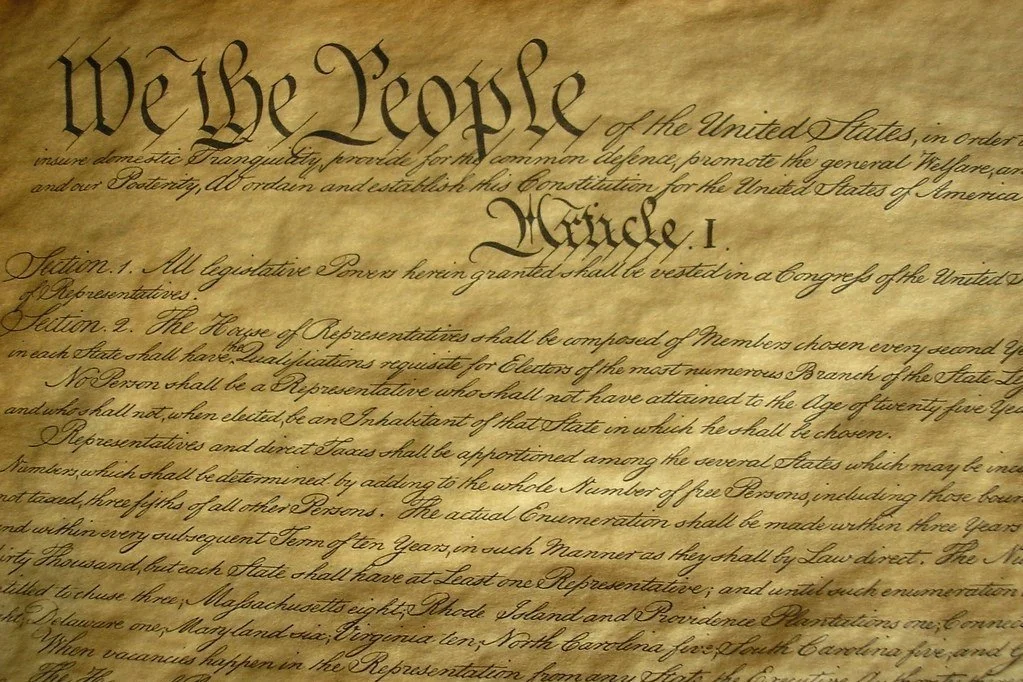 We the People of the United States, in order
insure domestic Tranquility, provide for the common defence, promote the general Welfare, an
and our Posterity, do ordain and establish this Constitution for the United States of America
Article. I.
Section. 1. All legislative Powers herein granted shall be vested in a Congreſs of the United
of Representatives.
Section. 2. The House of Representatives shall be composed of Members chosen every second Ye
in each State shall have the Qualifications requisite for Electors of the most numerous Branch of the State Le
No Person shall be a Representative who shall not have attained to the Age of twenty five Yea
and who shall not, when elected, be an Inhabitant of that State in which he shall be chosen.
Representatives and direct Taxes shall be apportioned among the several States which may be inclu
Numbers, which shall be determined by adding to the whole Number of free Persons, including those boun
not taxed, three fifths of all other Persons. The actual Enumeration shall be made within three Years
nd within every subsequent Term of ten Years, in such Manner as they shall by Law direct. The Nu
irty Thousand, but each State shall have at Least one Representative; and until such enumeration
titled to chuse three, Maſsachusetts eight, Rhode Island and Providence Plantations one, Connec
ht, Delaware one, Maryland six, Virginia ten, North Carolina five, South Carolina five, and G
When vacancies happen in the Representation from any State, the Executive
The